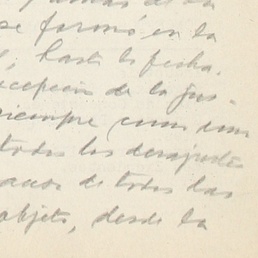 se formó en la
hasta la fecha.
cepción de la jus-
siempre como un
todos los desajustes
causa de todas las
objeto, desde la